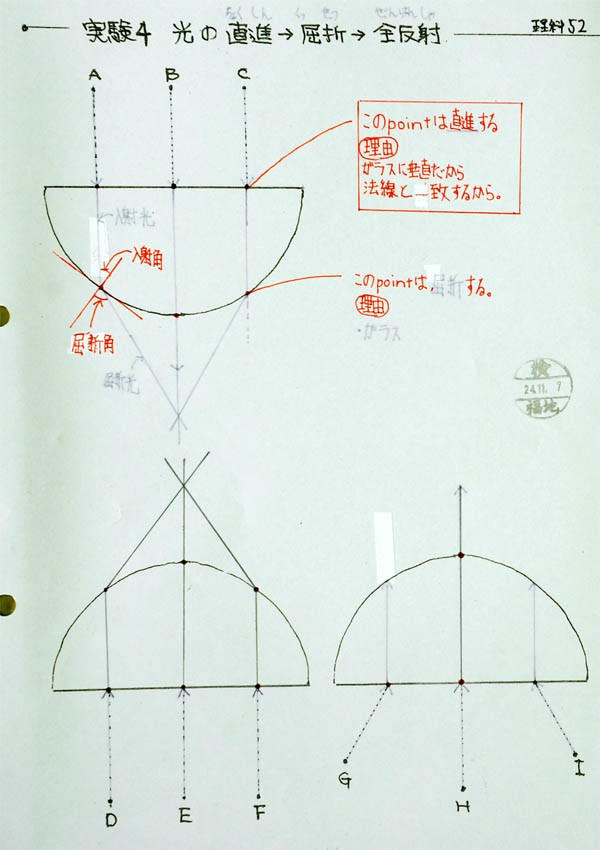 ちょくしん くっせつ ぜんはんしゃ
実験4 光の直進→屈折→全反射
理科52
A
B
C
このpointは直進する
理由
ガラスに垂直だから
法線と一致するから。
入射光
入射角
屈折角
屈折光
このpointは屈折する。
理由
・ガラス
検
24.11.7
福地
G
H
I
D
E
F